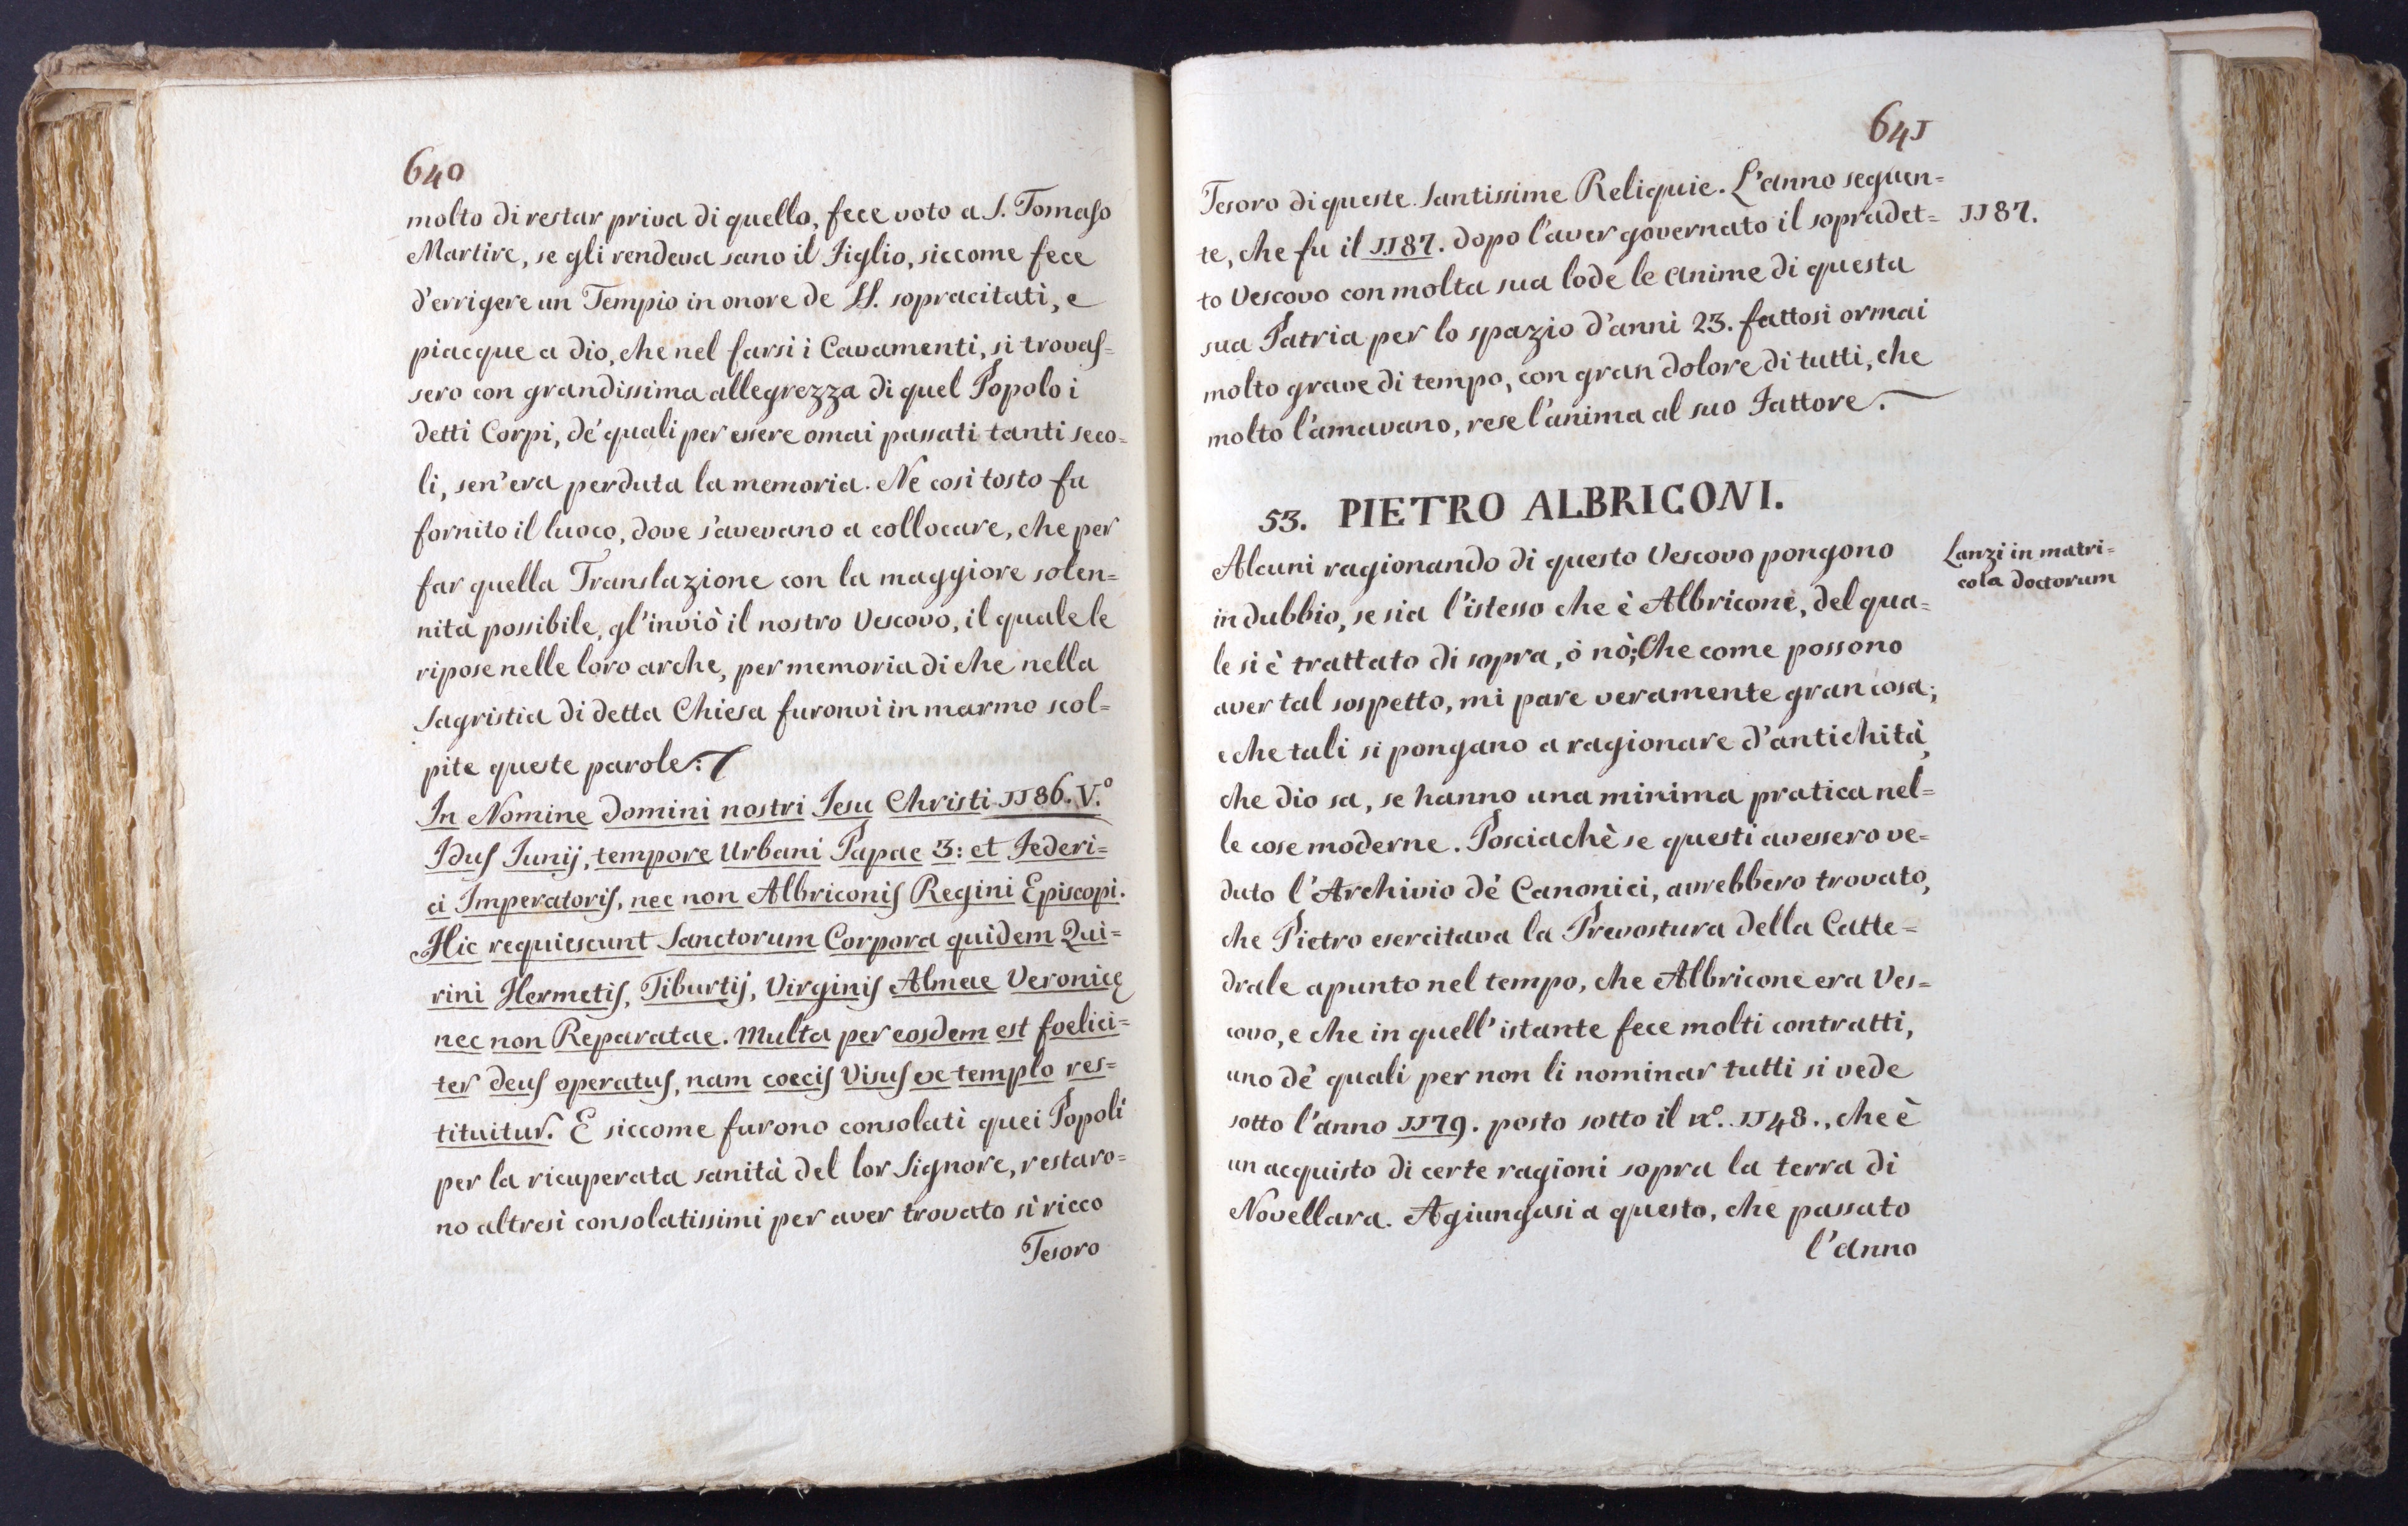 640
molto di restar priva di quello, fece voto a S. Tomaso
Martire, se gli rendeva sano il Figlio, siccome fece
d'errigere un Tempio in onore de SS. sopracitati, e
piacque a dio, che nel farsi i Cavamenti, si trovas=
sero con grandissima allegrezza di quel Popolo i
detti Corpi, de' quali per essere omai passati tanti seco=
li, sen'era perduta la memoria. Ne cosi tosto fu
fornito il luoco, dove s'avevano a collocare, che per
far quella Translazione con la maggiore solen=
nità possibile, gl'inviò il nostro Vescovo, il quale le
ripose nelle loro arche, per memoria di che nella
Sagristia di detta Chiesa furonvi in marmo scol=
pite queste parole:
In Nomine Domini nostri Jesu Christi 1186. V.º
Idus Junij, tempore Urbani Papae 3: et Federi=
ci Imperatoris, nec non Albriconis Regini Episcopi.
Hic requiescunt Sanctorum Corpora quidem Qui=
rini Hermetis, Tiburtij, Virginis Almae Veronicę
nec non Reparatae. Multa per eosdem est foelici=
ter Deus operatus, nam coecis Visus ex templo res=
tituitur. E siccome furono consolati quei Popoli
per la ricuperata sanità del lor Signore, restaro=
no altresì consolatissimi per aver trovato sì ricco
Tesoro
641
Tesoro di queste Santissime Reliquie. L'anno seguen=
te, che fu il 1187. dopo l'aver governato il sopradet=
1187.
to Vescovo con molta sua lode le anime di questa
sua Patria per lo spazio d'anni 23. fattosi ormai
molto grave di tempo, con gran dolore di tutti, che
molto l'amavano, rese l'anima al suo Fattore.
53. PIETRO ALBRICONI.
Alcuni ragionando di questo Vescovo pongono
Lanzi in matri=
cola doctorum
in dubbio, se sia l'istesso che è Albricone, del qua=
le si è trattato di sopra, ò nò; Che come possono
aver tal sospetto, mi pare veramente gran cosa;
e che tali si pongano a ragionare d'antichità,
che dio sa, se hanno una minima pratica nel=
le cose moderne. Posciachè se questi avessero ve=
duto l'Archivio de' Canonici, avrebbero trovato,
che Pietro esercitava la Prevostura della Catte=
drale apunto nel tempo, che Albricone era Ves=
covo, e che in quell'istante fece molti contratti,
uno de' quali per non li nominar tutti si vede
sotto l'anno 1179. posto sotto il nº. 1148., che è
un acquisto di certe ragioni sopra la terra di
Novellara. Agiungasi a questo, che passato
l'anno